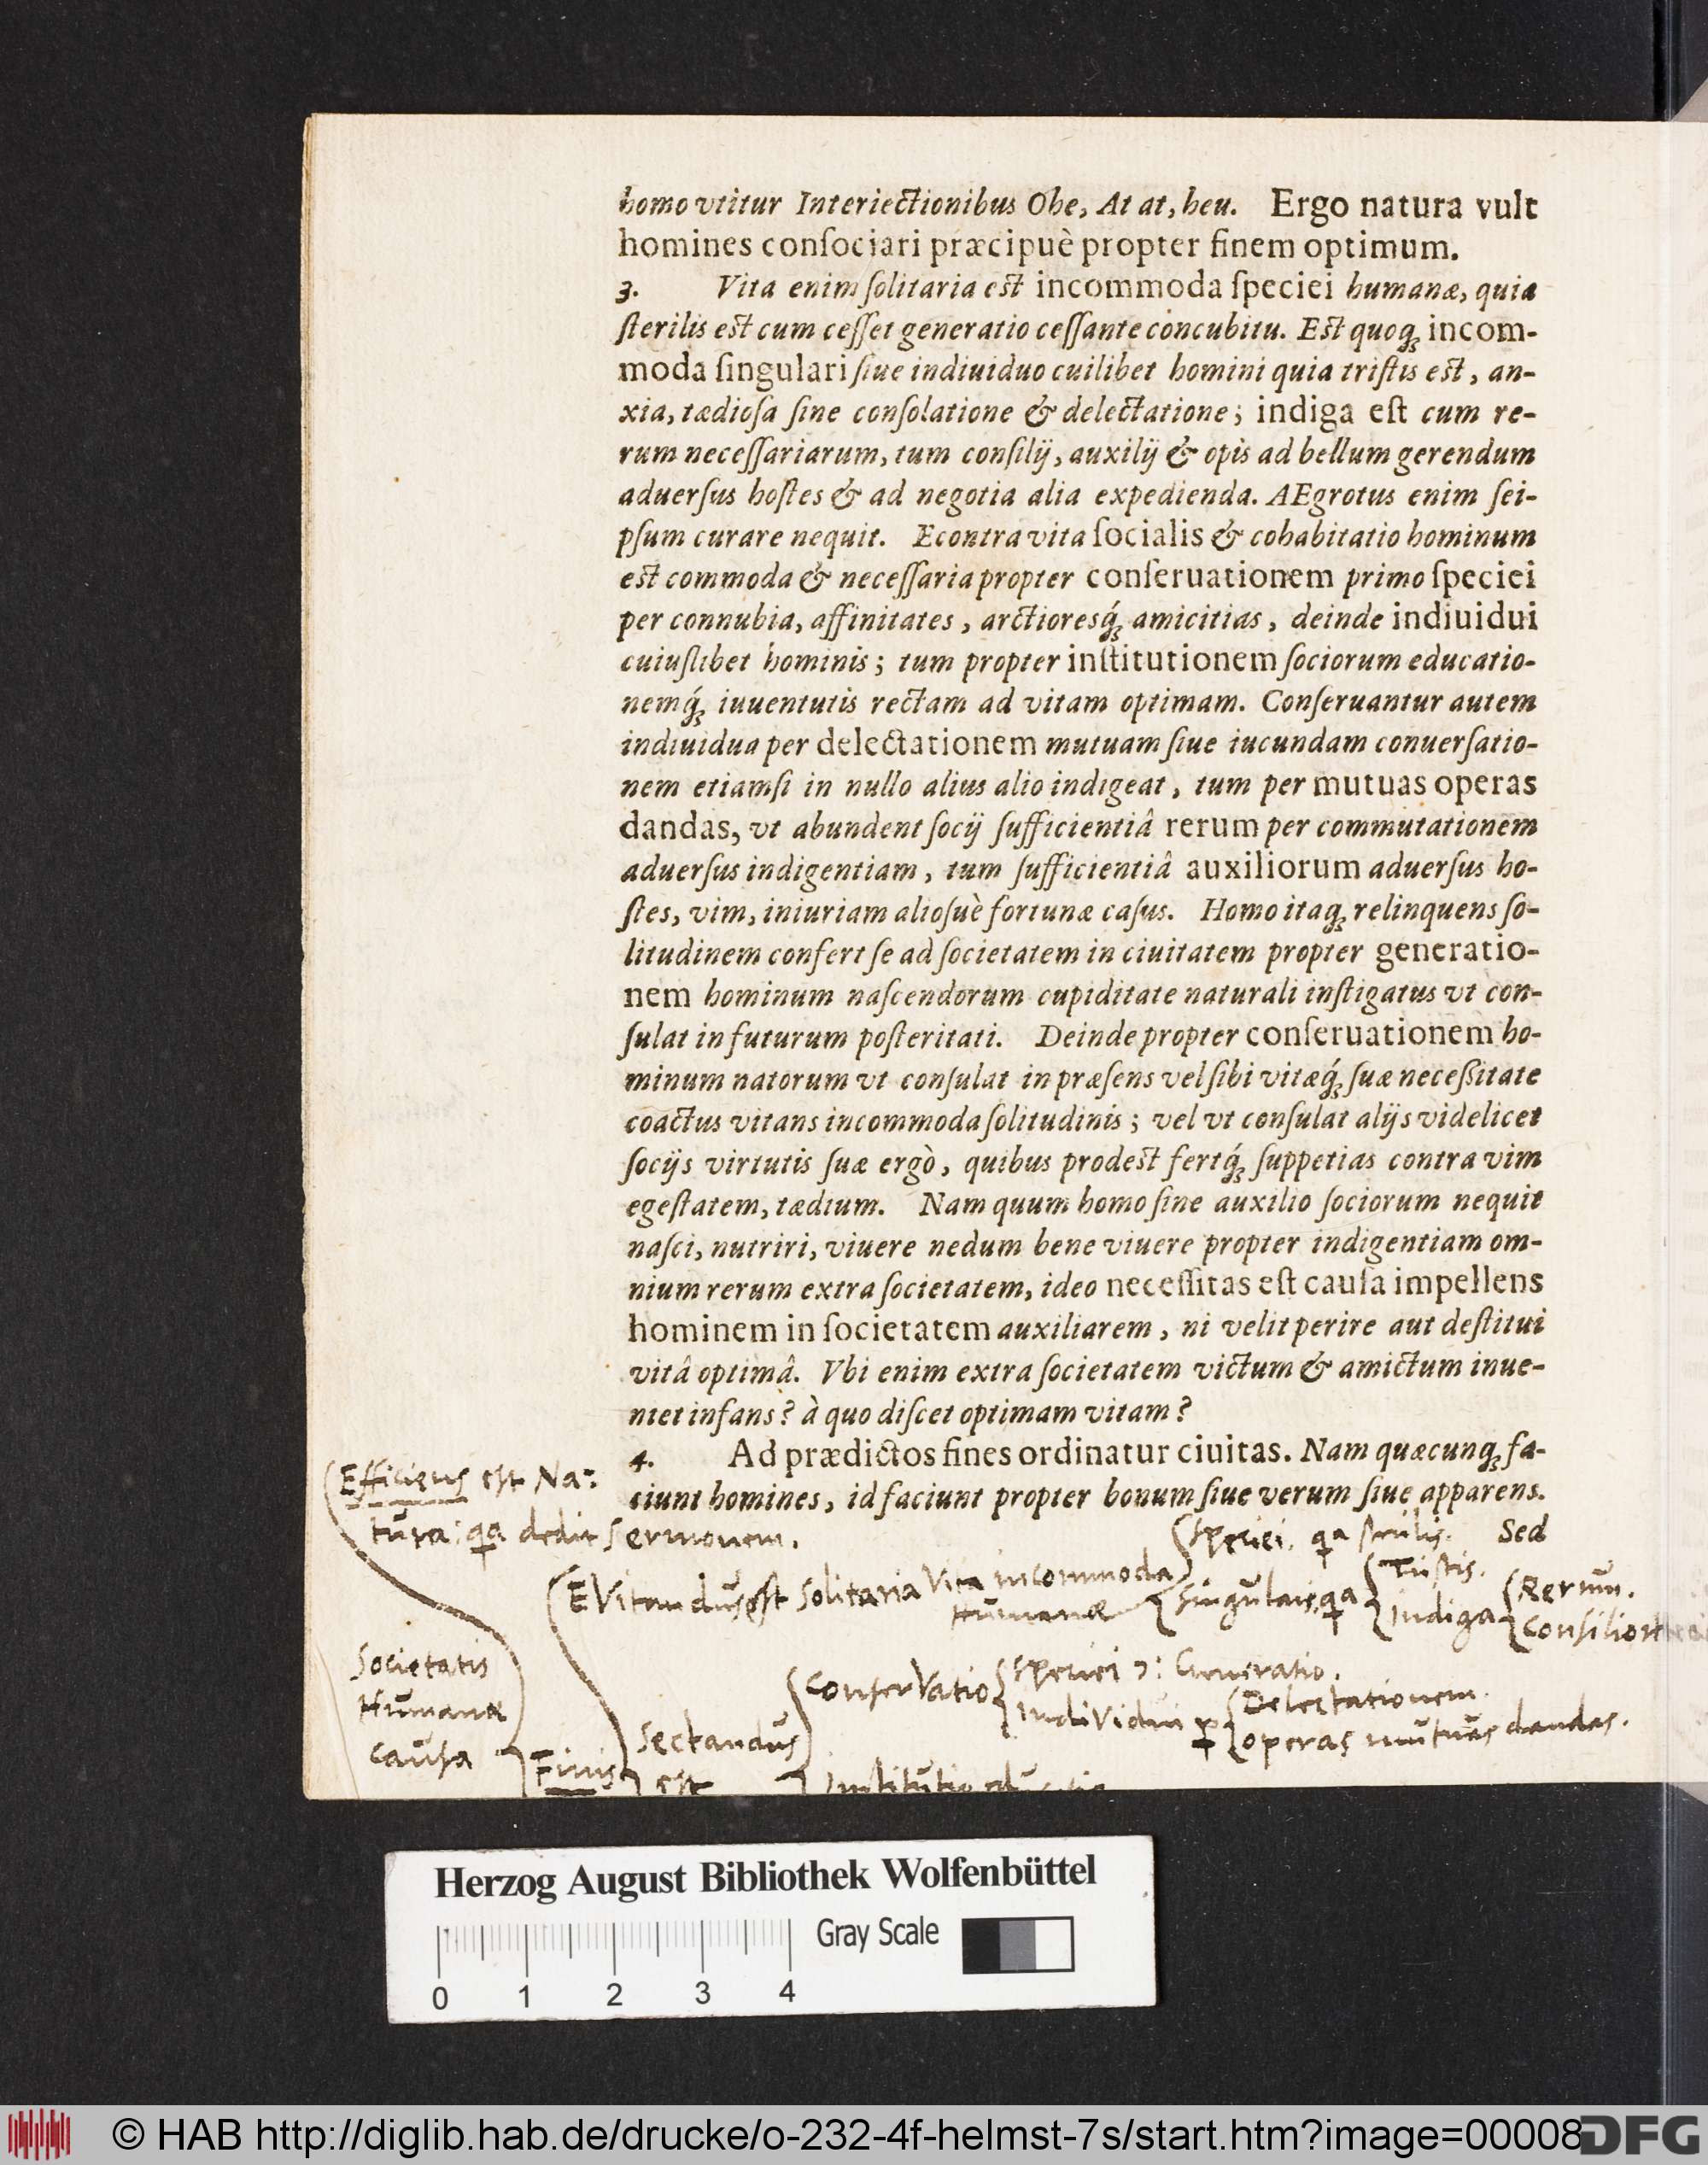 homo vtitur Interiectionibus Ohe, At at, heu. Ergo natura vult
homines conſociari præcipuè propter finem optimum.
3. Vita enim ſolitaria est incommoda ſpeciei humanæ, quia
ſterilis est cum ceſſet generatio ceſſante concubitu. Est quoq́; incom-
moda ſingulari ſiue indiuiduo cuilibet homini quia triſtis est, an-
xia, tædioſa ſine conſolatione & delectatione; indiga eſt cum re-
rum neceſſariarum, tum conſilij, auxilij & opis ad bellum gerendum
aduerſus hoſtes & ad negotia alia expedienda. AEgrotus enim ſei-
pſum curare nequit. Econtra vita ſocialis & cohabitatio hominum
est commoda & neceſſaria propter conſeruationem primo ſpeciei
per connubia, affinitates, arctioresq́; amicitias, deinde indiuidui
cuiuſlibet hominis; tum propter inſtitutionem ſociorum educatio-
nemq́; iuuentutis rectam ad vitam optimam. Conſeruantur autem
indiuidua per delectationem mutuam ſiue iucundam conuerſatio-
nem etiamſi in nullo alius alio indigeat, tum per mutuas operas
dandas, vt abundent ſocij ſufficientiâ rerum per commutationem
aduerſus indigentiam, tum ſufficientiâ auxiliorum aduerſus ho-
ſtes, vim, iniuriam alioſuè fortunæ caſus. Homo itaq; relinquens ſo-
litudinem confert ſe ad ſocietatem in ciuitatem propter generatio-
nem hominum naſcendorum cupiditate naturali inſtigatus vt con-
ſulat in futurum poſteritati. Deinde propter conſeruationem ho-
minum natorum vt conſulat in præſens vel ſibi vitæq́; ſuæ neceſſitate
coactus vitans incommoda ſolitudinis; vel vt conſulat alijs videlicet
ſocijs virtutis ſuæ ergò, quibus prodest fertq́; ſuppetias contra vim
egeſtatem, tædium. Nam quum homo ſine auxilio ſociorum nequit
naſci, nutriri, viuere nedum bene viuere propter indigentiam om-
nium rerum extra ſocietatem, ideo neceſſitas eſt cauſa impellens
hominem in ſocietatem auxiliarem, ni velit perire aut deſtitui
vitâ optimâ. Vbi enim extra ſocietatem victum & amictum inue-
niet infans? à quo diſcet optimam vitam?
4. Ad prædictos fines ordinatur ciuitas. Nam quæcunq; fa-
ciunt homines, id faciunt propter bonum ſiue verum ſiue apparens.
Sed
Efficiens est Na:
tura: qa dedit Sermonem.
EVitandus est Solitaria Vita incommoda
Humanæ
Speciei, qa sterilis.
Singulari, qa
Tristis.
Indiga
Rerum.
Consilior
Societatis
Humanæ
causa
Finis
est
Sectandus
ConserVatio
Speciei : Generatio.
IndiVidui p
Delectationem.
operas mutuas dandas.
Institutio
Herzog August Bibliothek Wolfenbüttel
Gray Scale
0 1 2 3 4
© HAB http://diglib.hab.de/drucke/o-232-4f-helmst-7s/start.htm?image=00008
DFG